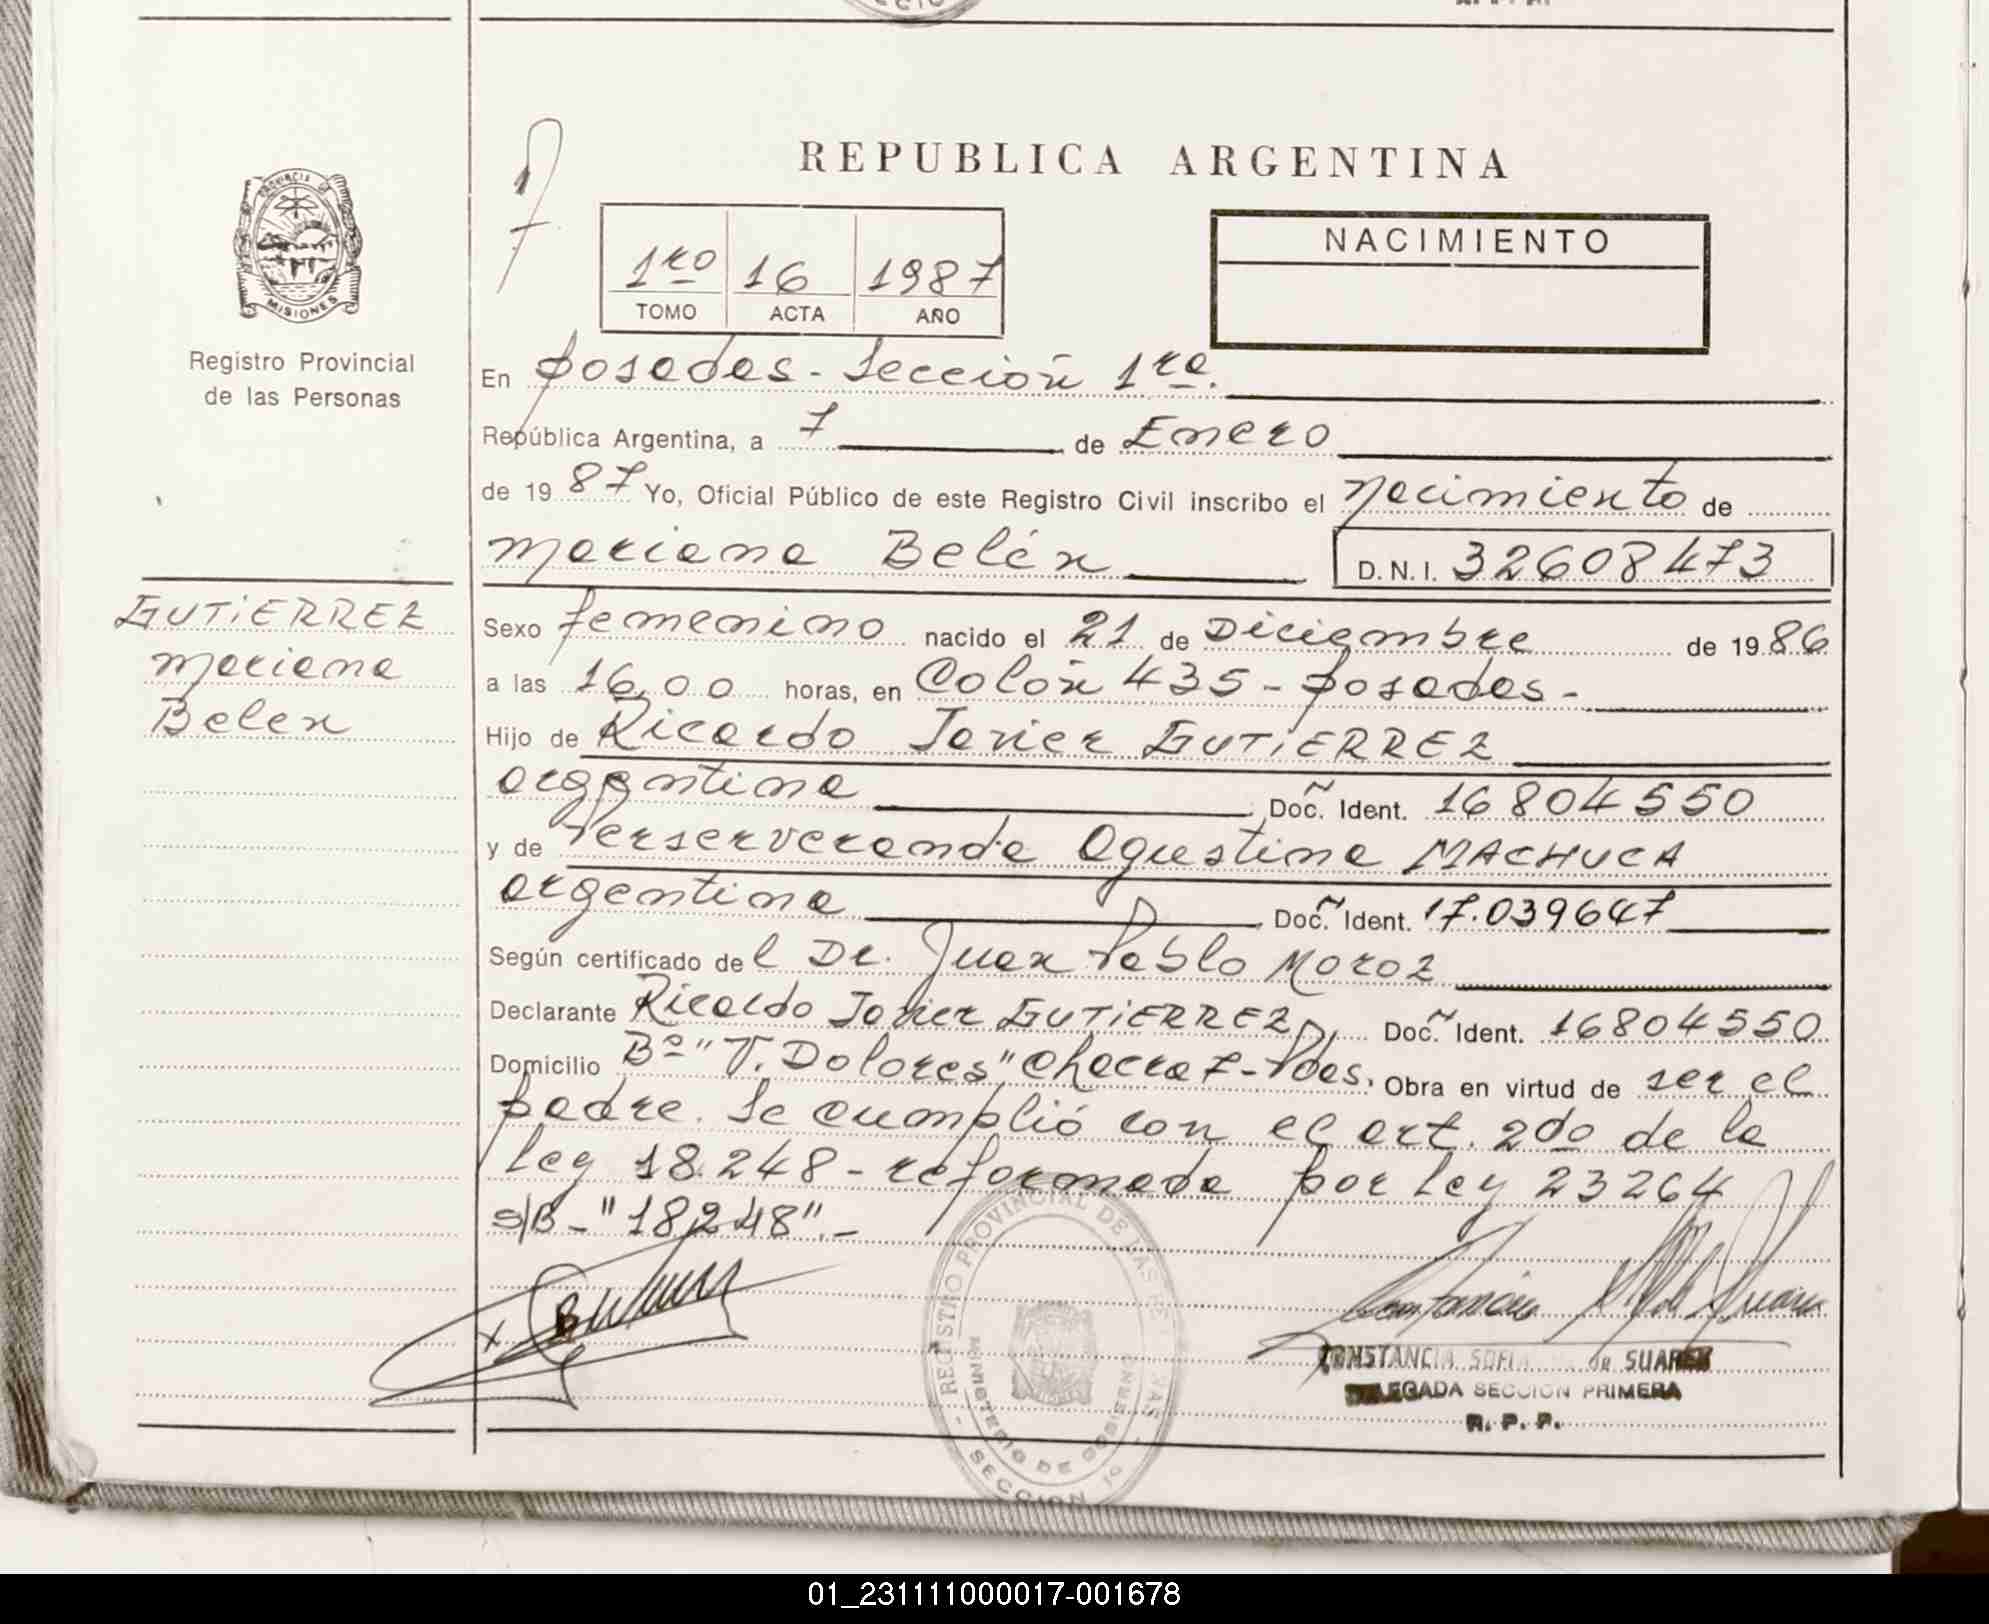 REPUBLICA ARGENTINA
PROVINCIA DE
MISIONES
Registro Provincial
de las Personas
1ro 16 1987
TOMO ACTA AÑO
NACIMIENTO
En Posadas - Sección 1ra.
República Argentina, a 7 de Enero
de 1987 Yo, Oficial Público de este Registro Civil inscribo el nacimiento de
Mariana Belén D.N.I. 32608473
GUTIERREZ
Mariana
Belen
Sexo femenino nacido el 21 de Diciembre de 1986
a las 16,00 horas, en Colón 435 - Posadas -
Hijo de Ricardo Javier GUTIERREZ
argentina Doc. Ident. 16804550
y de Perserveranda Agustina MACHUCA
argentina Doc. Ident. 17.039647
Según certificado del Dr. Juan Pablo Moroz
Declarante Ricardo Javier GUTIERREZ Doc. Ident. 16804550
Domicilio Bº "V. Dolores" Chacra 7 - Pdas. Obra en virtud de ser el
padre. Se cumplió con el art. 2do de la
Ley 18.248 - reformada por Ley 23264
S/B - "18,248". -
REGISTRO PROVINCIAL DE LAS PERSONAS
MINISTERIO DE GOBIERNO
SECCION 1º
CONSTANCIA SOFIA de SUAREZ
DELEGADA SECCION PRIMERA
R. P. P.
01_231111000017-001678